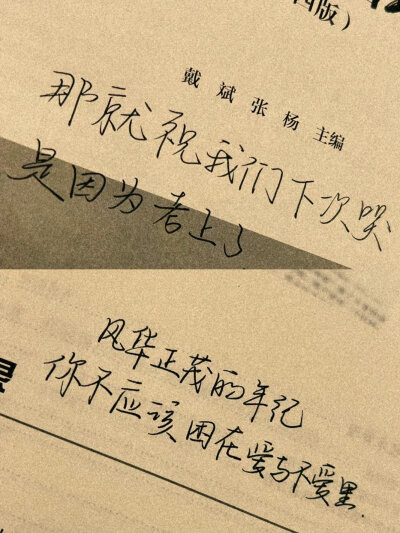 四版）
戴斌张杨 主编
那就祝我们下次哭
是因为考上了
风华正茂的年纪
你不应该困在爱与不爱里.